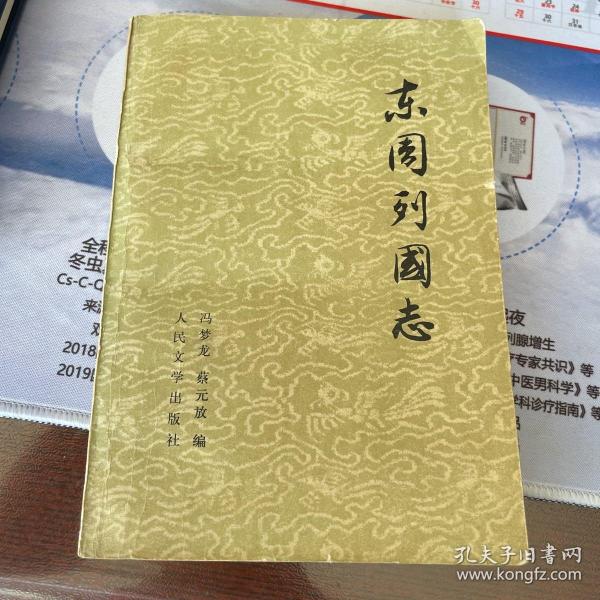 东周列國志
冯梦龙 蔡元放 编
人民文学出版社
冬虫
Cs-C-Q
2018
2019
夜
列腺增生
专家共识》等
中医男科学》等
学科诊疗指南》等
孔夫子旧书网
www.kongfz.com